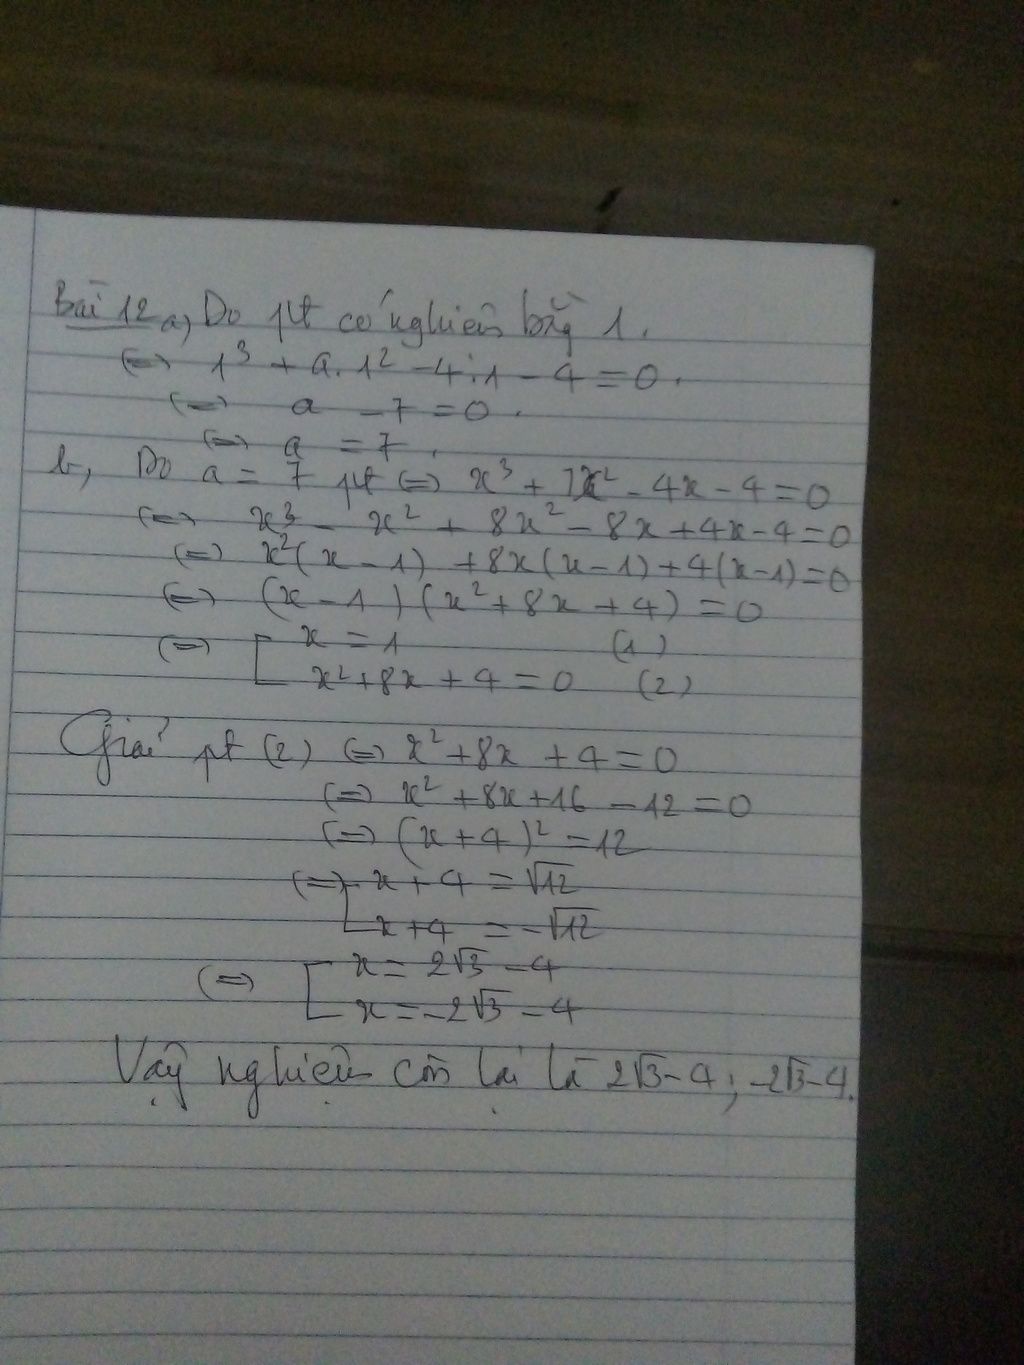 Bài 12 a, Do pt có nghiệm bằng 1.
<=> 1³ + a.1² - 4.1 - 4 = 0.
<=> a - 7 = 0.
<=> a = 7.
b, Do a = 7 pt <=> x³ + 7x² - 4x - 4 = 0
<=> x³ - x² + 8x² - 8x + 4x - 4 = 0
<=> x²(x - 1) + 8x(x - 1) + 4(x - 1) = 0
<=> (x - 1)(x² + 8x + 4) = 0
<=> [ x = 1 (1)
x² + 8x + 4 = 0 (2)
Giải pt (2) <=> x² + 8x + 4 = 0
<=> x² + 8x + 16 - 12 = 0
<=> (x + 4)² = 12
<=> [ x + 4 = √12
x + 4 = -√12
<=> [ x = 2√3 - 4
x = -2√3 - 4
Vậy nghiệm còn lại là 2√3 - 4 ; -2√3 - 4.